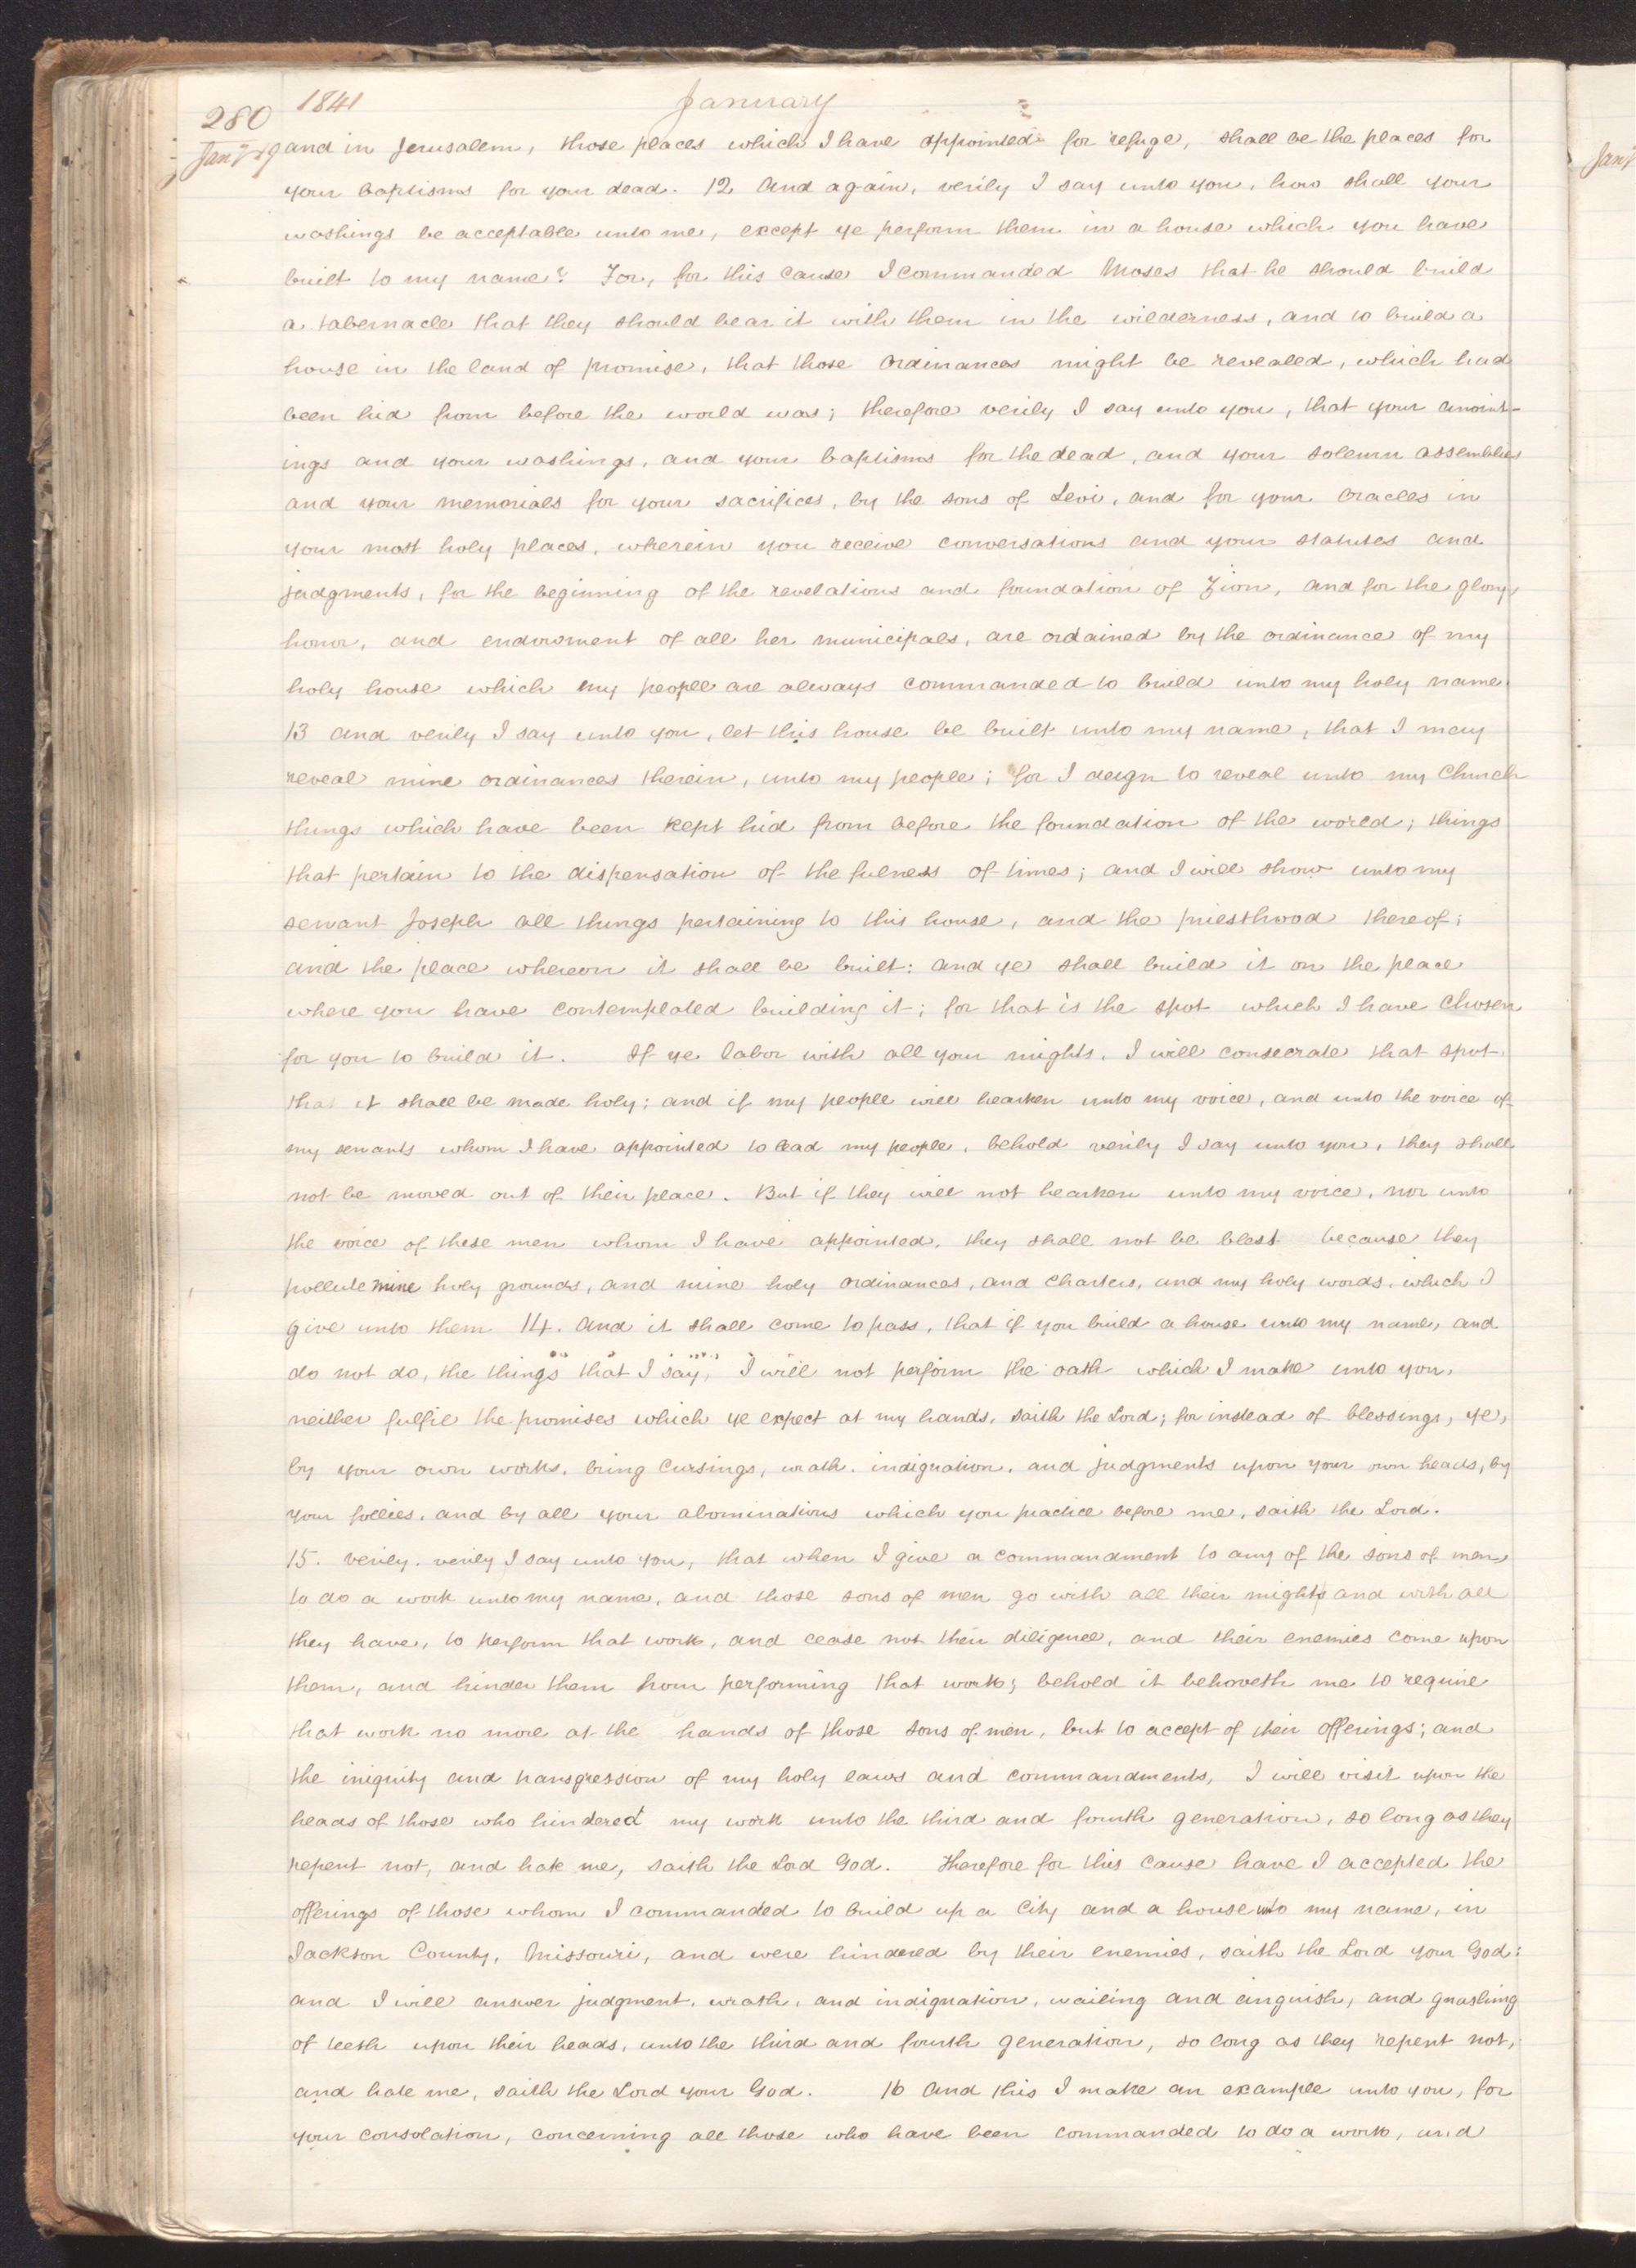 280 1841 January
Jany 19 and in Jerusalem, those places which I have appointed for refuge, shall be the places for
your baptisms for your dead. 12 And again, verily I say unto you, how shall your
washings be acceptable unto me, except ye perform them in a house which you have
built to my name? For, for this cause I commanded Moses that he should build
a tabernacle that they should bear it with them in the wilderness, and to build a
house in the land of promise, that those ordinances might be revealed, which had
been hid from before the world was; therefore verily I say unto you, that your anoint-
ings and your washings, and your baptisms for the dead, and your solemn assemblies
and your memorials for your sacrifices, by the sons of Levi, and for your oracles in
your most holy places, wherein you receive conversations and your statutes and
judgments, for the beginning of the revelations and foundation of Zion, and for the glory,
honor, and endowment of all her municipals, are ordained by the ordinance of my
holy house which my people are always commanded to build unto my holy name.
13 and verily I say unto you, let this house be built unto my name, that I may
reveal mine ordinances therein, unto my people; for I deign to reveal unto my Church
things which have been kept hid from before the foundation of the world; things
that pertain to the dispensation of the fulness of times; and I will show unto my
servant Joseph all things pertaining to this house, and the priesthood thereof;
and the place whereon it shall be built: and ye shall build it on the place
where you have contemplated building it; for that is the spot which I have chosen
for you to build it. If ye labor with all your mights, I will consecrate that spot,
that it shall be made holy; and if my people will hearken unto my voice, and unto the voice of
my servants whom I have appointed to lead my people, behold verily I say unto you, they shall
not be moved out of their place. But if they will not hearken unto my voice, nor unto
the voice of these men whom I have appointed, they shall not be blest because they
pollute mine holy grounds, and mine holy ordinances, and charters, and my holy words, which I
give unto them 14. And it shall come to pass, that if you build a house unto my name, and
do not do, the things that I say, I will not perform the oath which I make unto you,
neither fulfil the promises which ye expect at my hands, saith the Lord; for instead of blessings, ye,
by your own works, bring cursings, wrath, indignation, and judgments upon your own heads, by
your follies, and by all your abominations which you practice before me, saith the Lord.
15. verily, verily I say unto you, that when I give a commandment to any of the sons of men,
to do a work unto my name, and those sons of men go with all their mights and with all
they have, to perform that work, and cease not their diligence, and their enemies come upon
them, and hinder them from performing that work; behold it behoveth me to require
that work no more at the hands of those sons of men, but to accept of their offerings; and
the iniquity and transgression of my holy laws and commandments, I will visit upon the
heads of those who hindered my work unto the third and fourth generation, so long as they
repent not, and hate me, saith the Lord God. Therefore for this cause have I accepted the
offerings of those whom I commanded to build up a city and a house unto my name, in
Jackson County, Missouri, and were hindered by their enemies, saith the Lord your God:
and I will answer judgment, wrath, and indignation, wailing and anguish, and gnashing
of teeth upon their heads, unto the third and fourth generation, so long as they repent not,
and hate me, saith the Lord your God. 16 And this I make an example unto you, for
your consolation, concerning all those who have been commanded to do a work, and